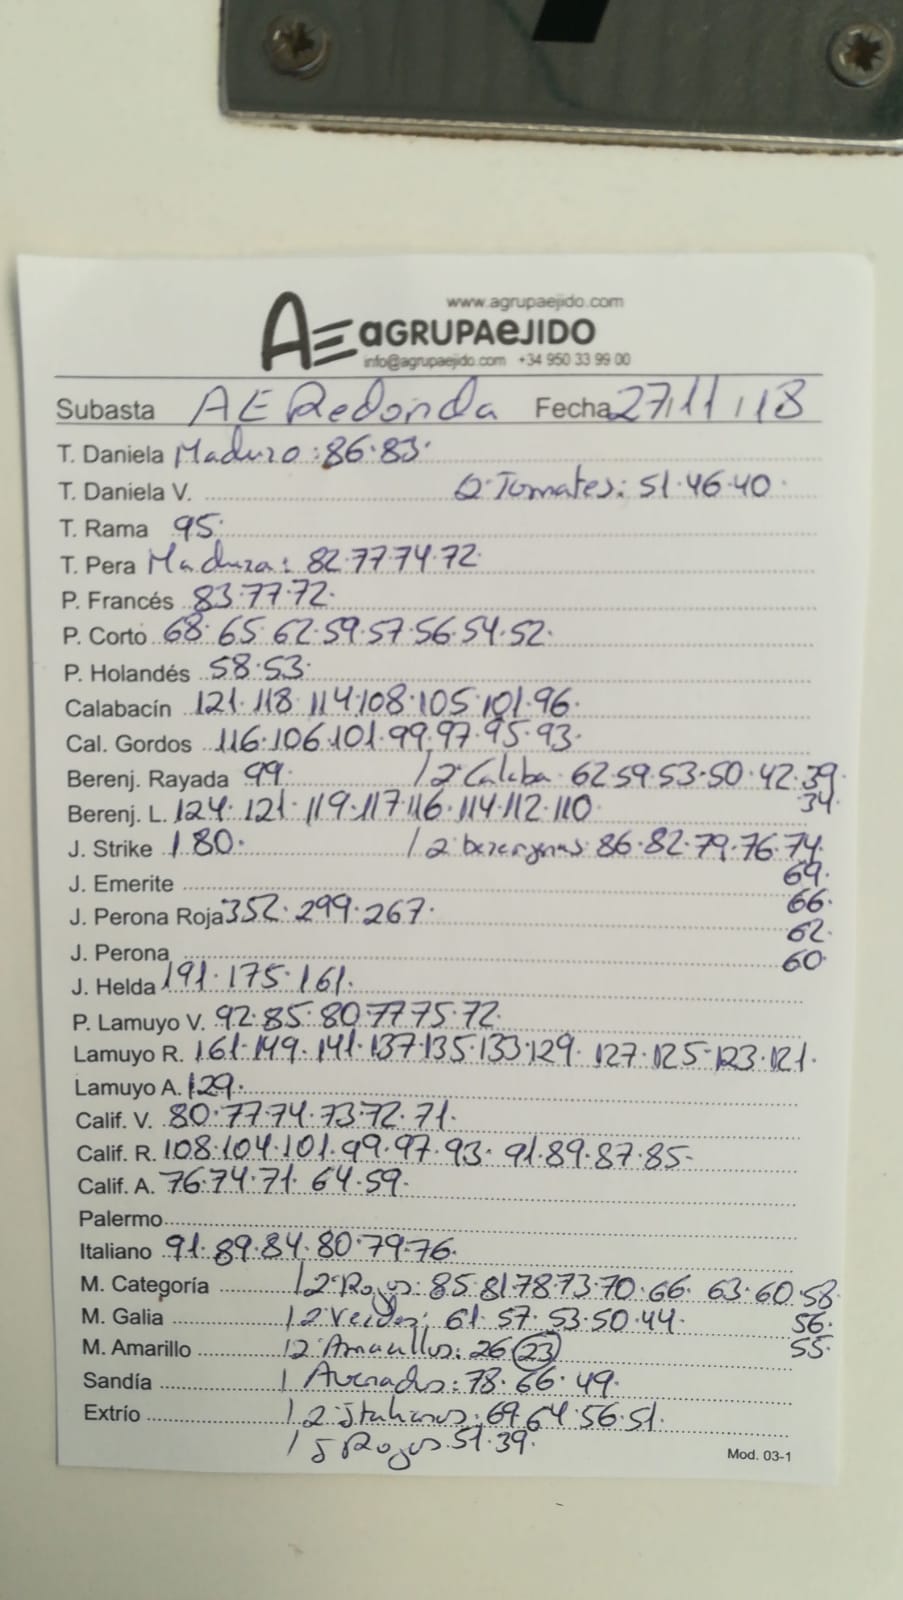 www.agrupaejido.com
AE aGRUPAeJIDO
info@agrupaejido.com +34 950 33 99 00
Subasta AE Redonda Fecha 27/11/18
T. Daniela Maduro: 86.83.
T. Daniela V. 2 Tomates: 51.46.40.
T. Rama 95.
T. Pera Madura: 82.77.74.72.
P. Francés 83.77.72.
P. Corto 68.65.62.59.57.56.54.52.
P. Holandés 58.53.
Calabacín 121.118.114.108.105.101.96.
Cal. Gordos 116.106.101.99.97.95.93.
Berenj. Rayada 99. / 2ª Calaba 62.59.53.50.42.39.
34.
Berenj. L. 124.121.119.117.116.114.112.110
J. Strike 180. / 2 berengenas 86.82.79.76.74.
69.
J. Emerite
66.
J. Perona Roja 352.299.267.
62.
J. Perona
60.
J. Helda 191.175.161.
P. Lamuyo V. 92.85.80.77.75.72.
Lamuyo R. 161.149.141.137.135.133.129.127.125.123.121.
Lamuyo A. 129.
Calif. V. 80.77.74.73.72.71.
Calif. R. 108.104.101.99.97.93.91.89.87.85.
Calif. A. 76.74.71.64.59.
Palermo
Italiano 91.89.84.80.79.76.
M. Categoría / 2 Rojos: 85.81.78.73.70.66.63.60.58.
M. Galia / 2 Verdes: 61.57.53.50.44.
56.
M. Amarillo / 2 Amarillos: 26.23
55.
Sandía / Asurcados: 78.66.49.
Extrío / 2 Italianos: 69.64.56.51.
/ 5 Rojos 51.39.
Mod. 03-1